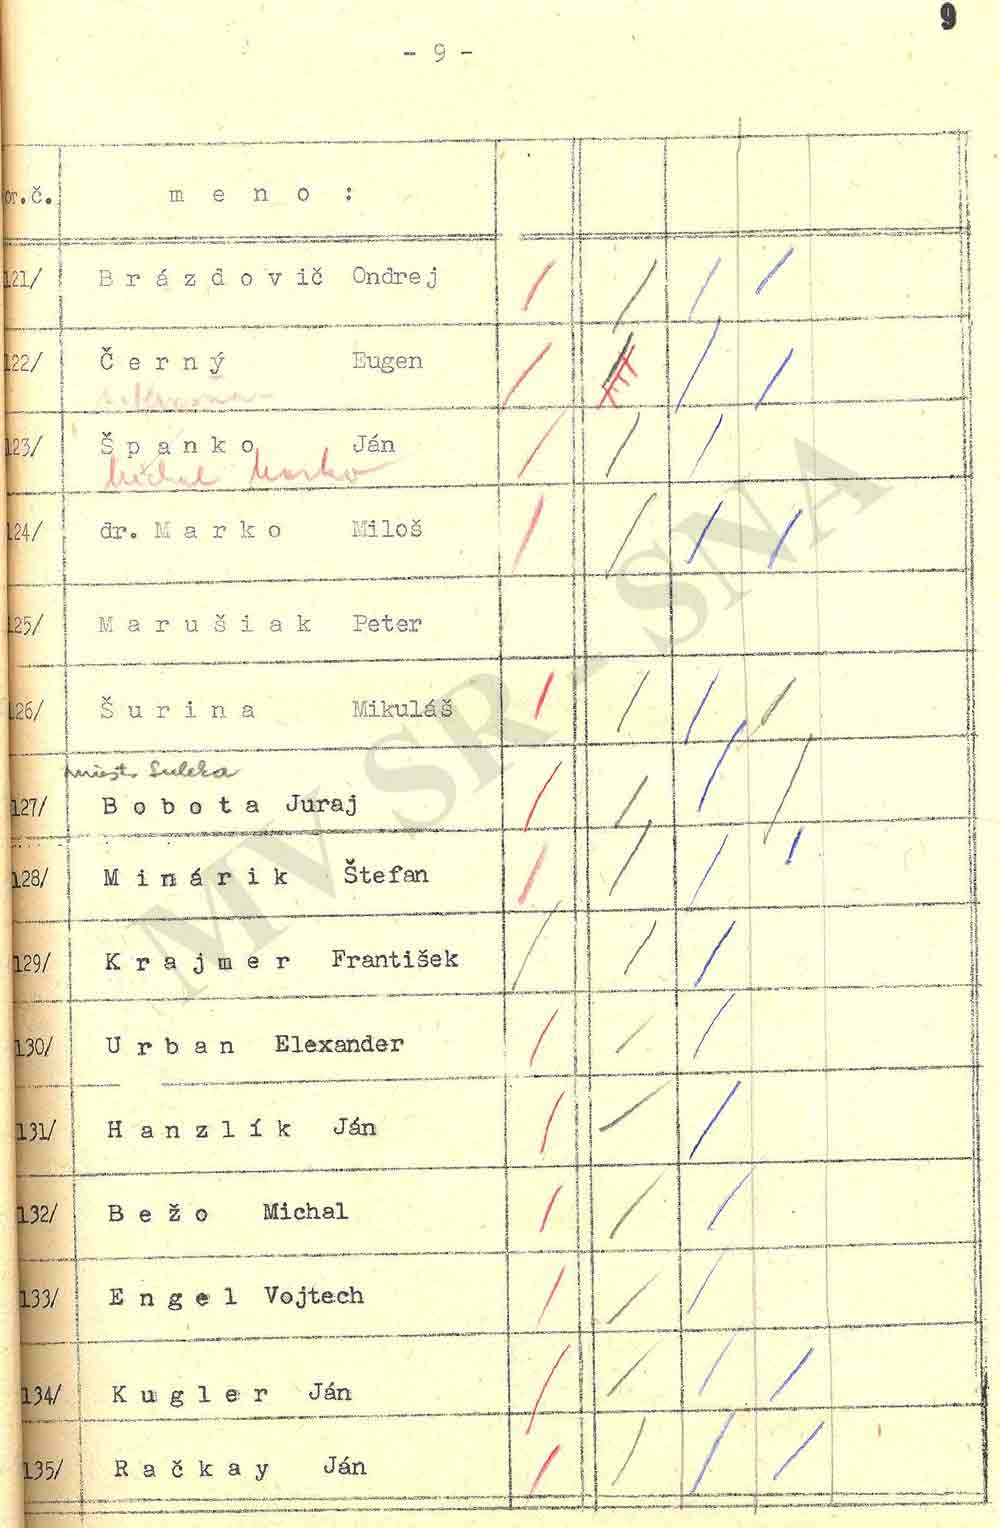 9
- 9 -
or.č. m e n o :
121/ B r á z d o v i č Ondrej
122/ Č e r n ý Eugen
123/ Š p a n k o Ján
Michal Marko
124/ dr. M a r k o Miloš
125/ M a r u š i a k Peter
126/ Š u r i n a Mikuláš
miesto
127/ B o b o t a Juraj
128/ M i n á r i k Štefan
129/ K r a j m e r František
130/ U r b a n Elexander
131/ H a n z l í k Ján
132/ B e ž o Michal
133/ E n g e l Vojtech
134/ K u g l e r Ján
135/ R a č k a y Ján
MV SR SNA